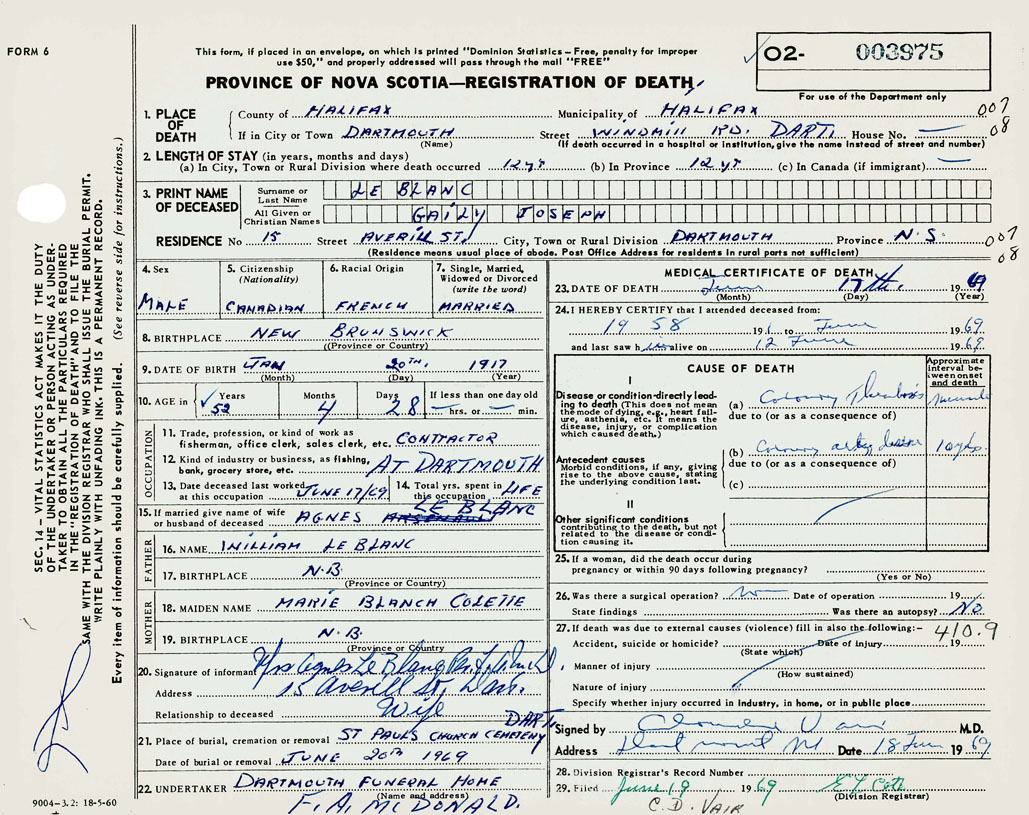 FORM 6
This form, if placed in an envelope, on which is printed "Dominion Statistics – Free, penalty for improper
use $50," and properly addressed will pass through the mail "FREE"
PROVINCE OF NOVA SCOTIA—REGISTRATION OF DEATH
02- 003975
For use of the Department only
1. PLACE OF DEATH
County of HALIFAX Municipality of HALIFAX 007
If in City or Town DARTMOUTH Street WINDMILL RD. DART. House No. — 08
(Name) (If death occurred in a hospital or institution, give the name instead of street and number)
2. LENGTH OF STAY (in years, months and days)
(a) In City, Town or Rural Division where death occurred 12 yr (b) In Province 12 yr (c) In Canada (if immigrant) —
3. PRINT NAME OF DECEASED
Surname or Last Name LE BLANC
All Given or Christian Names GAILY JOSEPH
RESIDENCE No 15 Street AVERILL ST. City, Town or Rural Division DARTMOUTH Province N.S. 007
(Residence means usual place of abode. Post Office Address for residents in rural parts not sufficient) 08
4. Sex
MALE
5. Citizenship (Nationality)
CANADIAN
6. Racial Origin
FRENCH
7. Single, Married, Widowed or Divorced (write the word)
MARRIED
8. BIRTHPLACE NEW BRUNSWICK
((Province or Country)
9. DATE OF BIRTH JAN 20TH. 1917
(Month) (Day) (Year)
10. AGE in Years 52 Months 4 Days 28 If less than one day old — hrs. or — min.
OCCUPATION
11. Trade, profession, or kind of work as
fisherman, office clerk, sales clerk, etc. CONTRACTOR
12. Kind of industry or business, as fishing,
bank, grocery store, etc. AT DARTMOUTH
13. Date deceased last worked
at this occupation JUNE 17/69
14. Total yrs. spent in
this occupation LIFE
15. If married give name of wife
or husband of deceased AGNES LE BLANC
FATHER
16. NAME WILLIAM LE BLANC
17. BIRTHPLACE N.B.
(Province or Country)
MOTHER
18. MAIDEN NAME MARIE BLANCH COLETTE
19. BIRTHPLACE N.B.
(Province or Country)
20. Signature of informant Mrs Agnes Le Blanc Per
Address 15 Averill St, Dart.
Relationship to deceased Wife
21. Place of burial, cremation or removal ST PAULS CHURCH CEMETENY DART.
Date of burial or removal JUNE 20TH 1969
22. UNDERTAKER DARTMOUTH FUNERAL HOME
(Name and address)
F. A. MCDONALD.
MEDICAL CERTIFICATE OF DEATH
23. DATE OF DEATH June 17th. 1969
(Month) (Day) (Year)
24. I HEREBY CERTIFY that I attended deceased from:
1958 19 to June 1969
and last saw h im alive on 12 June 1969
CAUSE OF DEATH
Approximate interval between onset and death
I
Disease or condition directly leading to death (This does not mean
the mode of dying, e.g., heart failure, asthenia, etc. It means the
disease, injury, or complication
which caused death.)
(a) Coronary Thrombosis
due to (or as a consequence of)
Antecedent causes
Morbid conditions, if any, giving
rise to the above cause, stating
the underlying condition last.
(b) Coronary artery disease 10 yrs.
due to (or as a consequence of)
(c)
II
Other significant conditions
contributing to the death, but not
related to the disease or condition causing it.
25. If a woman, did the death occur during
pregnancy or within 90 days following pregnancy?
(Yes or No)
26. Was there a surgical operation? No Date of operation 19
State findings Was there an autopsy? No
27. If death was due to external causes (violence) fill in also the following:– 410.9
Accident, suicide or homicide? Date of injury 19
(State which)
Manner of injury
(How sustained)
Nature of injury
Specify whether injury occurred in Industry, in home, or in public place
Signed by M.D.
Address Date 18 June 1969
28. Division Registrar's Record Number
29. Filed June 19 1969
(Division Registrar)
C.D. VAIR
SEC. 14 – VITAL STATISTICS ACT MAKES IT THE DUTY
OF THE UNDERTAKER OR PERSON ACTING AS UNDER-
TAKER TO OBTAIN ALL THE PARTICULARS REQUIRED
IN THE "REGISTRATION OF DEATH" AND TO FILE THE
SAME WITH THE DIVISION REGISTRAR WHO SHALL ISSUE THE BURIAL PERMIT.
WRITE PLAINLY WITH UNFADING INK. THIS IS A PERMANENT RECORD.
Every item of information should be carefully supplied. (See reverse side for instructions.)
9004-3.2: 18-5-60